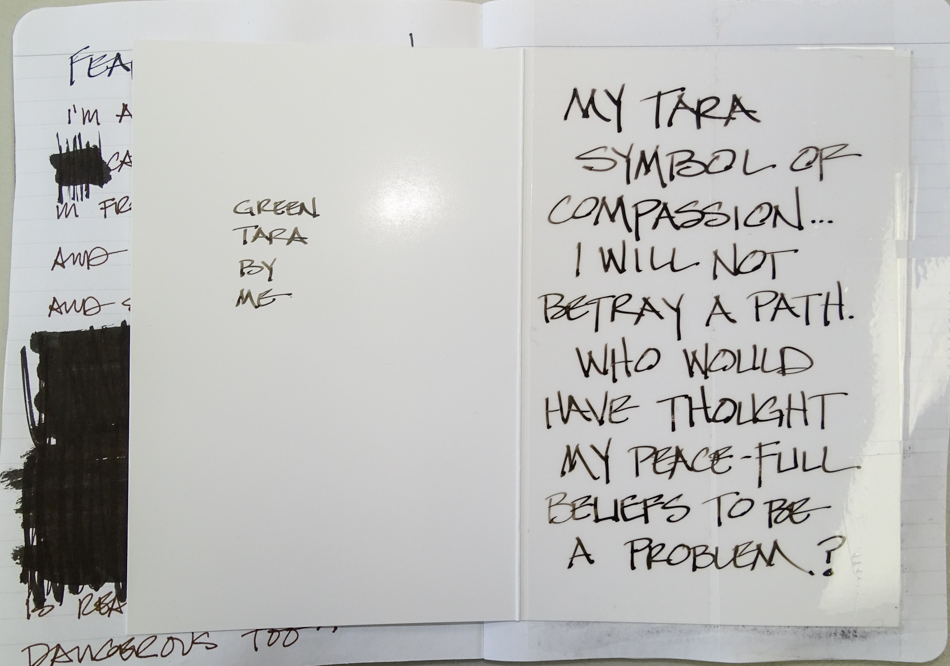 I'M A
AND
AND
DANGEROUS TOO"
GREEN
TARA
BY
ME
MY TARA
SYMBOL OF
COMPASSION...
I WILL NOT
BETRAY A PATH.
WHO WOULD
HAVE THOUGHT
MY PEACE-FULL
BELIEFS TO BE
A PROBLEM.?